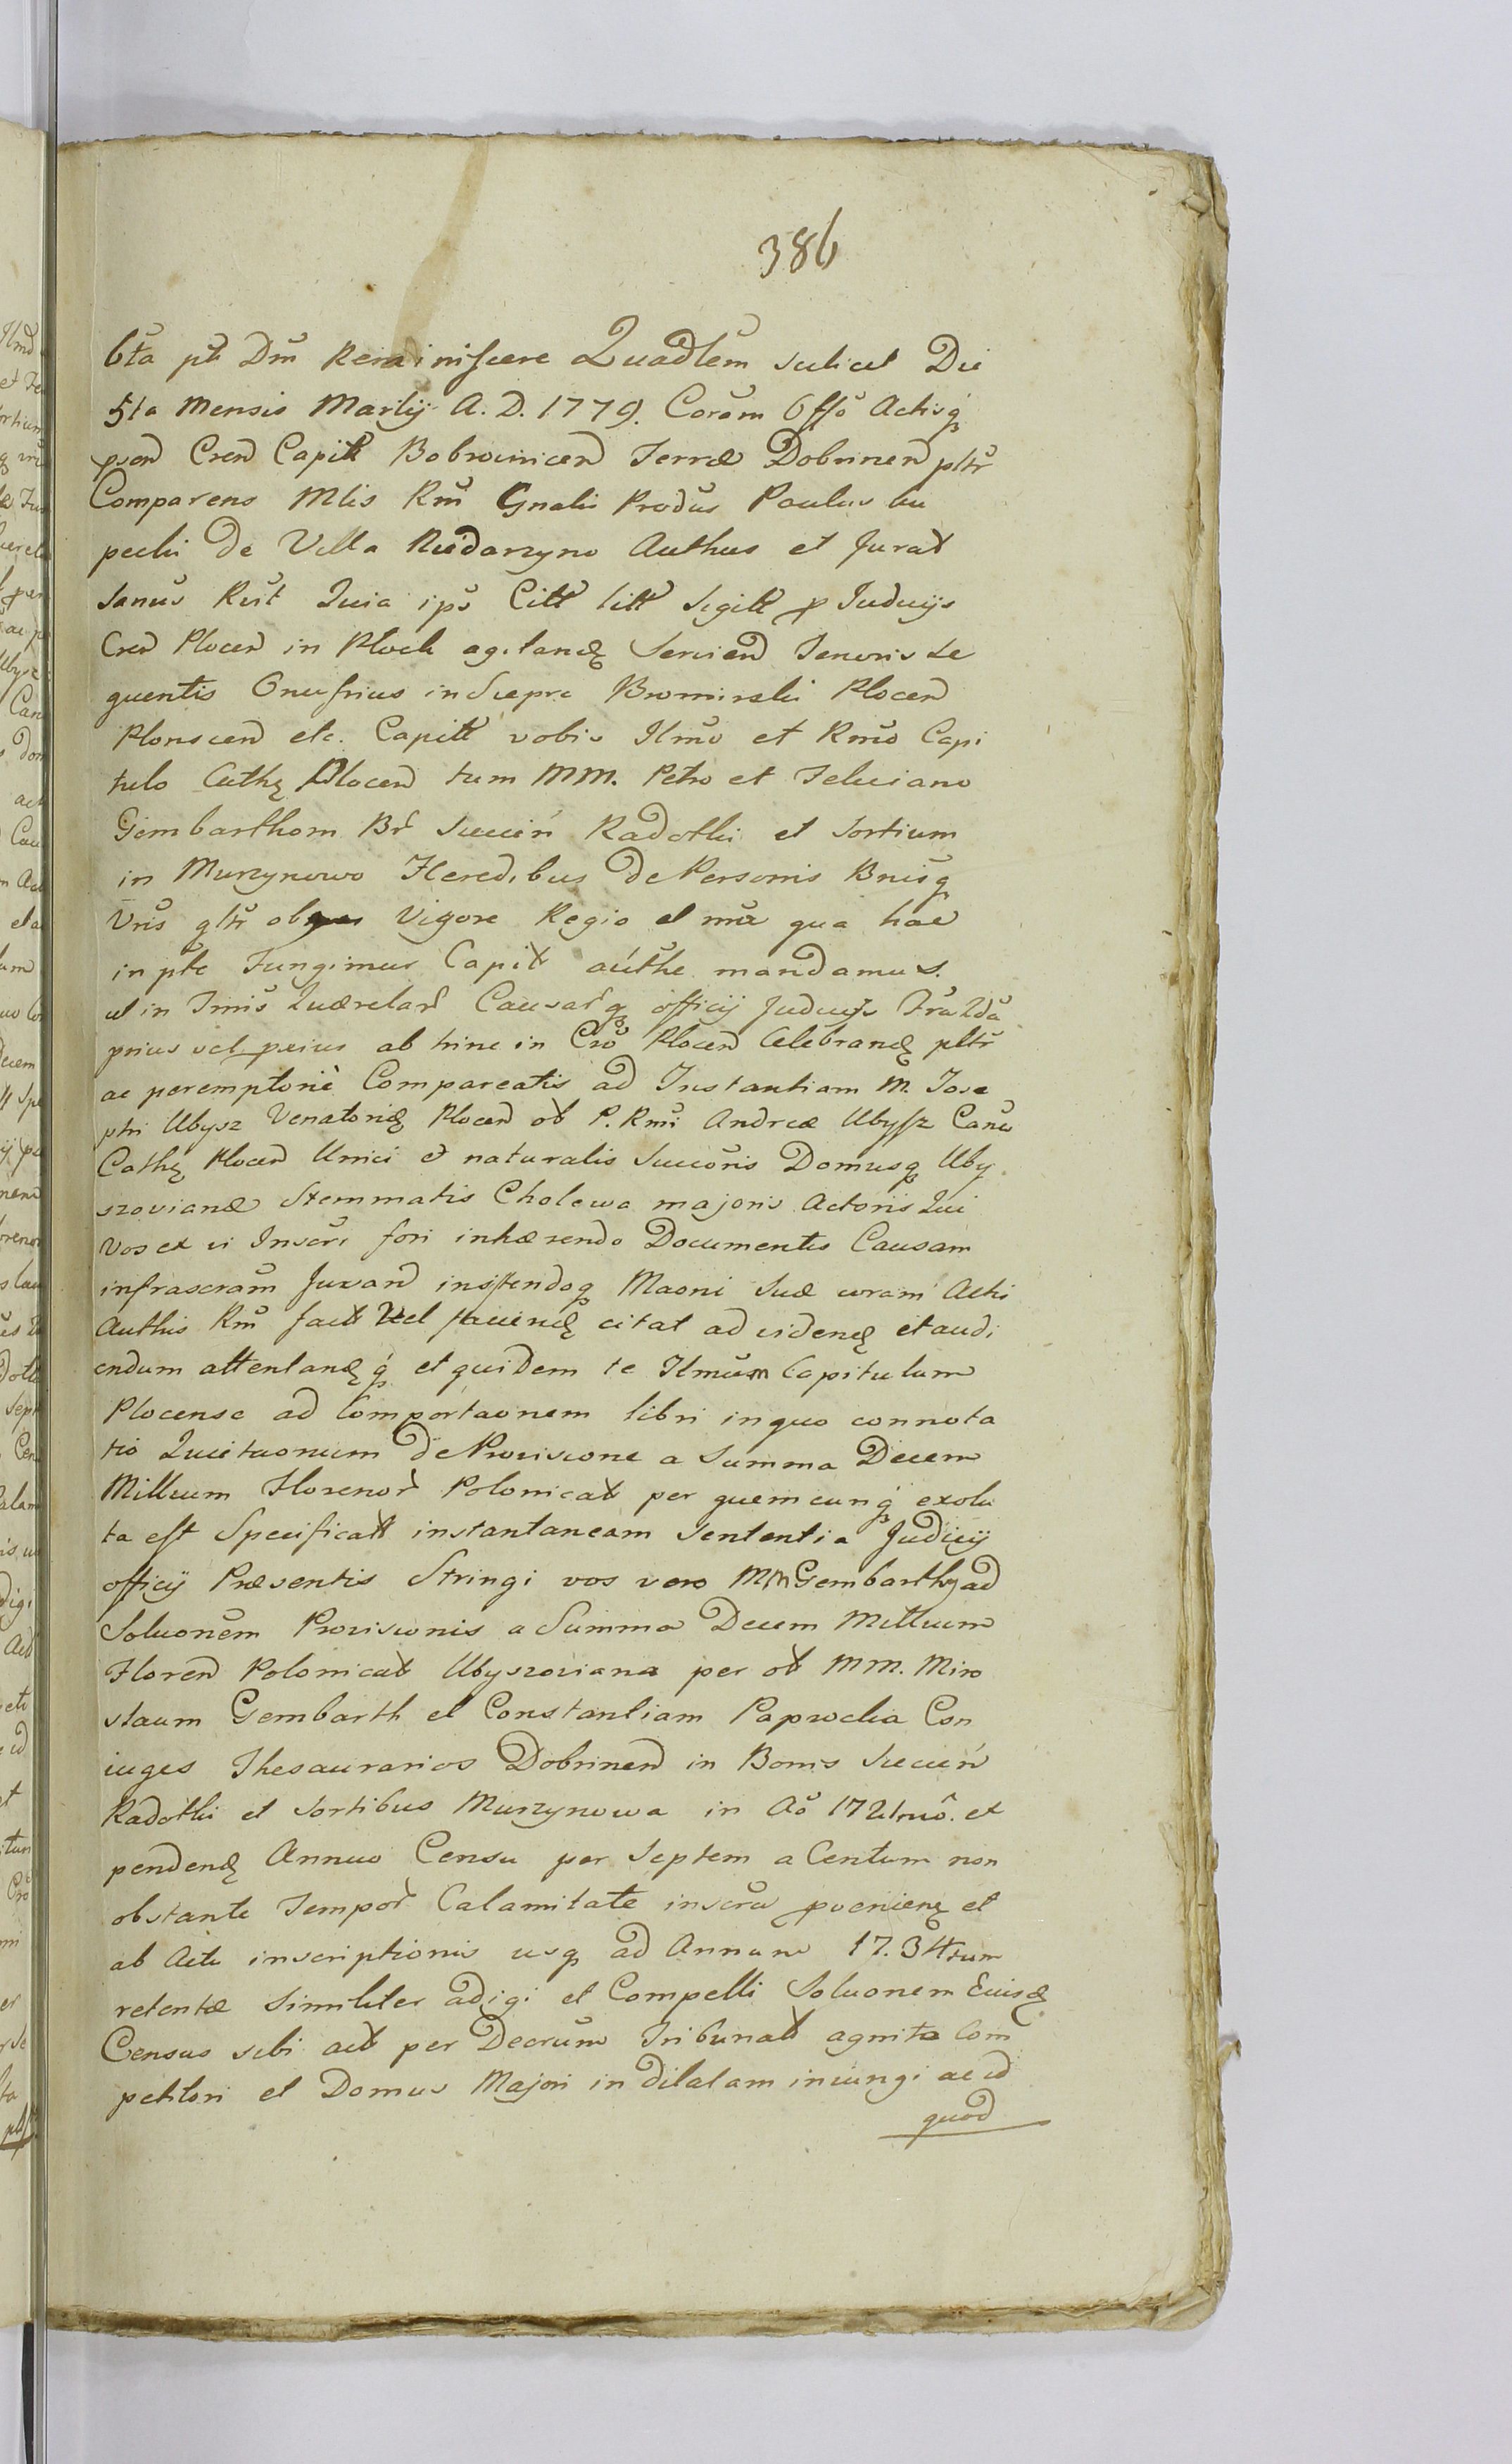 386
6ta pt Dm̃ Reminiscere Quadlem̃ scilicet Die
5ta Mensis Martij A. D. 1779. Corõm Offõ Actisq́
psen Cren Capitt Bobrownicen Terræ Dobrinen pltr̃
Comparens Mtis Rm̃ Gnalis Prodũs Paulus Lu
pecki de Villa Rudarzyno Authus et Jurat
sanũs Rñt Quia ipõ Citt litt Sigitt p Judicijs
Cren Plocen in Plock agitand Servien Tenoris Se
quentis Onufrius in Sierpre Bromirski Plocen
Plonscen etc. Capitt vobis Ilmõ et Rmõ Capi
tulo Cathę Plocen tum MM. Petro et Feliciano
Gembarthom Br̃ Siecień Radotki et Sortium
in Murzynowo Heredibus de Personis Bnisq̃
Vris gltr̃ Vigore Regio et mẽa qua hac
in pte Fungimur Capit authe mandamus.
ut in Tmis Querelar Causarq officij Judicijs
prius vel pxius ab hinc in Crõ Plocen Celebrand pltr̃
ac peremptoriè Compareatis ad Instantiam M. Jose
phi Ubysz Venatorid Plocen ot P. Rmi Andreæ Ubysz Canci
Cathę Plocen Unici et naturalis Succõris Domusq Uby
szovianæ Stemmatis Cholewa majoris Actoris Qui
Vos ex vi Inscri fori inhærendo Documentis Causam
infrascram̃ Juvan insistendoq Maoni Suæ coram̃ Actis
Authis Rm̃ fact Vel faciend citat ad videnđ et audi
endum attentandq́ et quidem te Ilmũm Capitulum
Plocense ad Comportaonem libri in quo connota
tio Quietaonum de Provisione a Summa Decem
Millium Florenor̃ Polonicat per quemcunq́ exolu
ta est Specificatt instantaneam Sententia Judicij
officij Præsentis Stringi vos vero MM Gembarthy ad
Soluonẽm Provisionis a Summa Decem Millium
Floren Polonicat Ubyszoviana per ot MM. Miro
slaum Gembarth et Constantiam Paprocka Con
iuges Thesaurarios Dobrinen in Bonis Siecień
Radotki et Sortibus Murzynowa in Aõ 1721mô. et
pendenđ Annuo Censu per Septem a Centum non
obstante Tempor̃ Calamitate inscrã pvenienđ et
ab Actu inscriptionis usq ad Annum 17.34tum
retentæ Similiter adigi et Compelli Soluonem Eiusd
Census sibi act per Decrũm Tribunat agnita Com
petitori et Domus Majori in dilatam iniungi ac id
quod